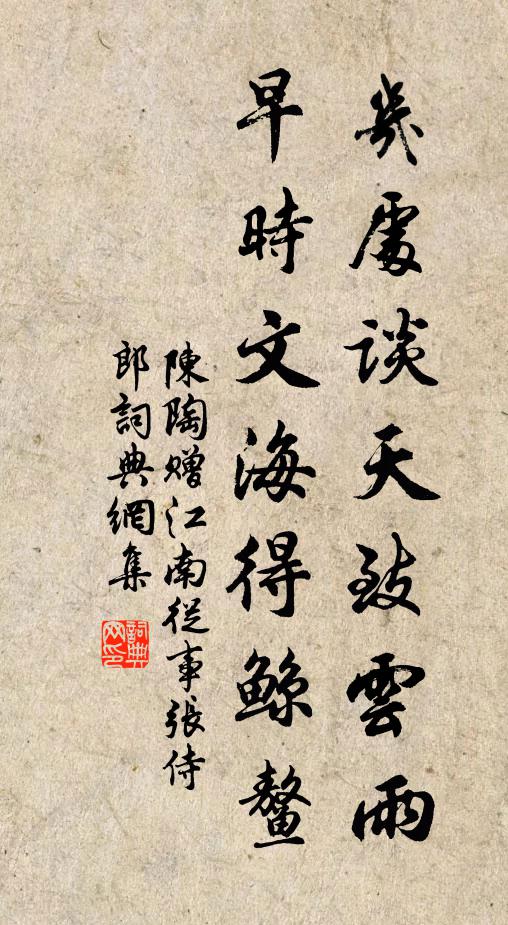 幾處談天致雲雨
早時文海得鯨鼇
陳陶贈江南從事張侍
郎詞典網集
詞典網印